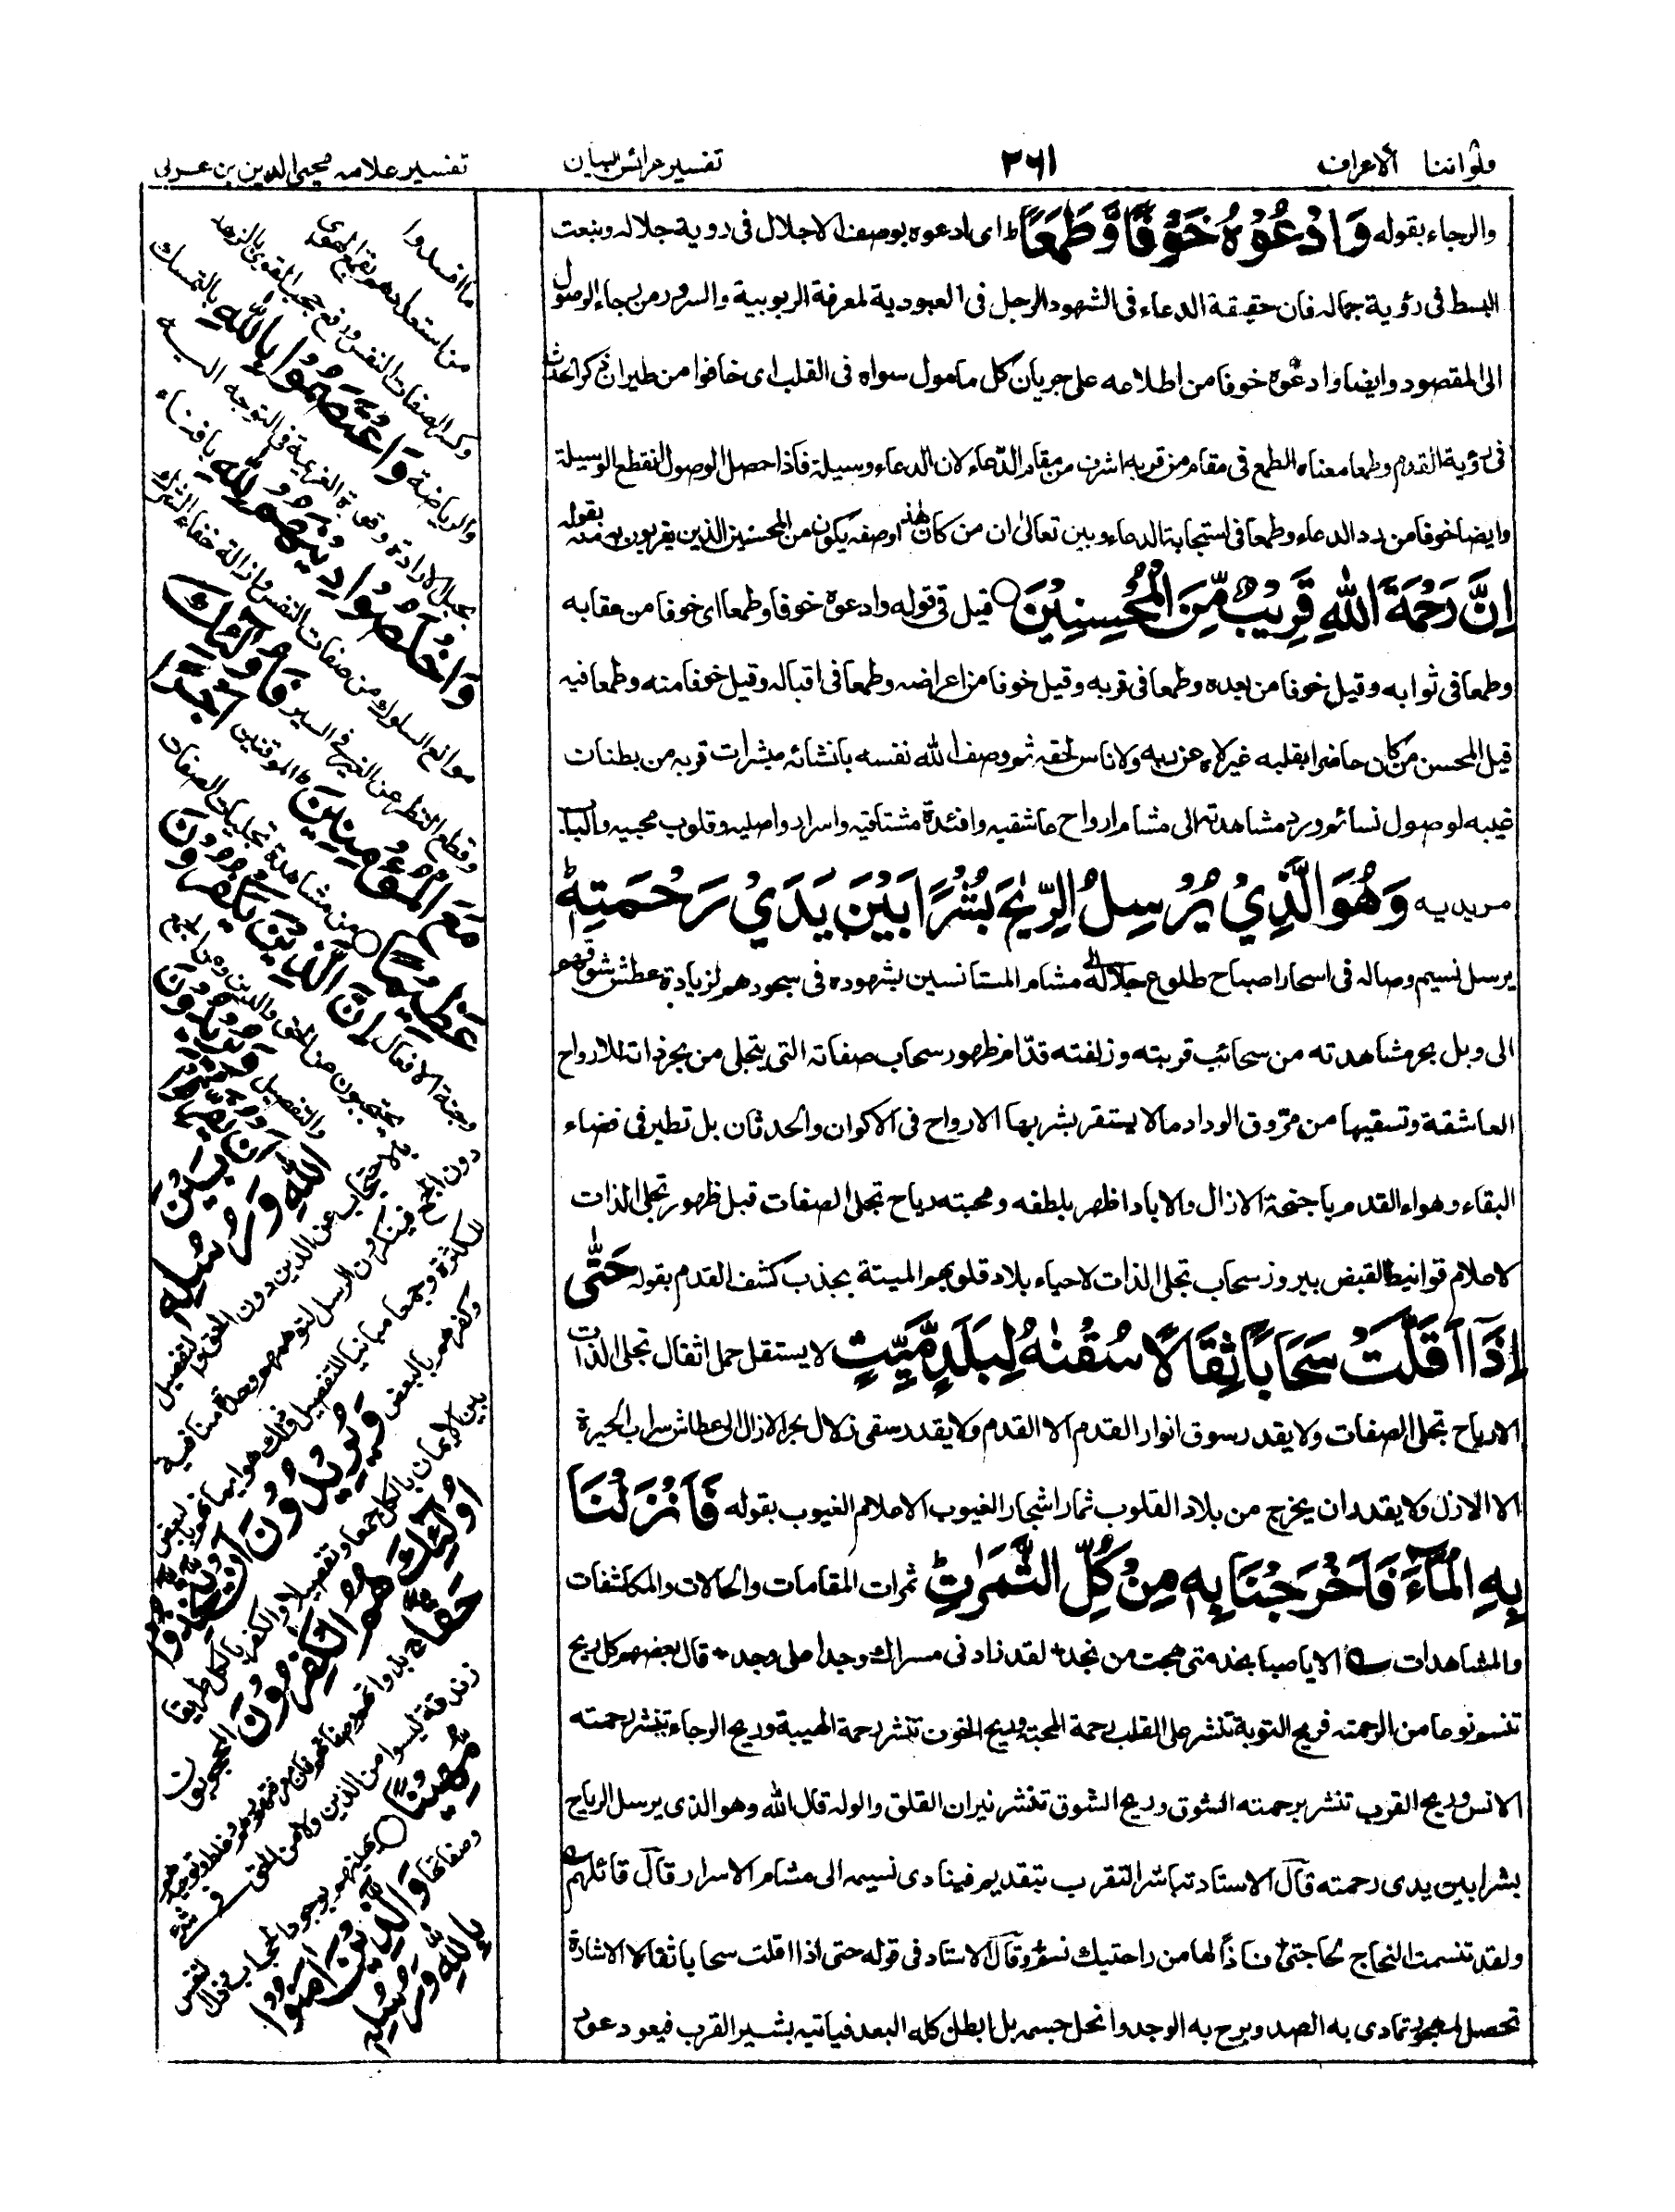 ولواننا الاعراف
٣٦١
تفسير عرائس البيان
تفسير علامہ محیی الدین بن عربی
والرجاء بقوله وَادْعُوْهُ خَوْفًا وَّطَمَعًا ط اى ادعوه بوصف الاجلال فى روية جلاله ونبعت
البسط فى رؤية جماله فان حقيقة الدعاء فى الشهود الرجل فى العبودية لمعرفة الربوبية والسرور من رجاء الوصول
الى المقصود وايضا وادعوه خوفا من اطلاعه على جريان كل مامول سواه فى القلب اى خافوا من طيران ذكر الحدث
فى رؤية القدم وطمعا معناه الطمع فى مقام من قربه اشرف من مقام الدعاء لان الدعاء وسيلة فاذا حصل الوصول انقطع الوسيلة
وايضا خوفا من رد الدعاء وطمعا فى استجابة الدعاء وبين تعالى ان من كان هذا وصفه يكون من المحسنين الذين يقربون منه بقوله
اِنَّ رَحْمَةَ اللهِ قَرِيْبٌ مِّنَ الْمُحْسِنِيْنَ ○ قيل فى قوله وادعوه خوفا وطمعا اى خوفا من عقابه
وطمعا فى ثوابه وقيل خوفا من بعده وطمعا فى قربه وقيل خوفا من اعراضه وطمعا فى اقباله وقيل خوفا منه وطمعا فيه
قيل المحسن من كان حاضرا بقلبه غير لاه عن ربه ولا ناس لحقه ثم وصف الله نفسه بانشائه مبشرات قربه من بطنات
غيبه لوصول نسائم ورد مشاهدته الى مشام ارواح عاشقيه وافئدة مشتاقيه واسرار واصليه وقلوب محبيه والباب
مريديه وَهُوَ الَّذِيْ يُرْسِلُ الرِّيٰحَ بُشْرًا بَيْنَ يَدَيْ رَحْمَتِهٖ ط
يرسل نسيم وصاله فى اسحار اصباح طلوع جلاله الى مشام المستانسين بشهوده فى سجودهم لزيادة عطش شوقهم
الى وبل بحر مشاهدته من سحائب قربته وزلفته قدام ظهور سحاب صفاته التى يتجلى من بحر ذاته للارواح
العاشقة وتسقيها من مروق الوداد ما لا يستقر بشربها الارواح فى الاكوان والحدثان بل تطير فى فضاء
البقاء وهواء القدم باجنحة الازال والاباد اظهر بلطفه ومحبته رياح تجلى الصفات قبل ظهور تجلى الذات
لاعلام قوانيط القبض ببروز سحاب تجلى الذات لاحياء بلاد قلوبهم الميتة بجذب كشف القدم بقوله حَتّٰى
اِذَا اَقَلَّتْ سَحَابًا ثِقَالًا سُقْنٰهُ لِبَلَدٍ مَّيِّتٍ لا يستقل حمل اثقال تجلى الذات
الا رياح تجلى الصفات ولا يقدر سوق انوار القدم الا القدم ولا يقدر سقى زلال بحر الازال الى عطاش سراب الحيرة
الا الازل ولا يقدر ان يخرج من بلاد القلوب ثمار اشجار الغيوب الا علام الغيوب بقوله فَاَنْزَلْنَا
بِهِ الْمَآءَ فَاَخْرَجْنَا بِهٖ مِنْ كُلِّ الثَّمَرٰتِ ط ثمرات المقامات والحالات والمكاشفات
والمشاهدات الا يا صبا نجد متى هجت من نجد * لقد زادنى مسراك وجدا على وجد * قال بعضهم كل ريح
تنسو نوعا من الرحمته فريح التوبة تنشر على القلب رحمة المحبة وريح الخوف تنشر رحمة الهيبة وريح الرجاء تنشر رحمته
الانس وريح القرب تنشر برحمته الشوق وريح الشوق تنشر نيران القلق والوله قال الله وهو الذى يرسل الرياح
بشرا بين يدى رحمته قال الاستاد تباشر التقرب بتقديم فينادى نسيمه الى مشام الاسرار قال قائلهم
ولقد تنسمت النجاح لحاجتى فاذا لها من راحتيك نسيم وقال الاستاد فى قوله حتى اذا اقلت سحابا ثقالا الاشارة
تحصل تمادى به الصد وبرح به الوجد وانحل جسمه بل ابطل كله البعد فياتيه بشير القرب فيعود عود
ما افسدوا
من استعدادهم
وكسر صفات النفس ورفع حجب القوى بالزهد
والرياضة وَاعْتَصَمُوْا بِاللهِ بالتمسك
بحبل الارادة وقوة العزيمة فى التوجه اليه
وَاَخْلَصُوْا دِيْنَهُمْ لِلّٰهِ بافناء
موانع السلوك من صفات النفس وازالة خفاء الشرك
وقطع النظر عن الغير فى السير فَاُولٰٓئِكَ
مَعَ الْمُؤْمِنِيْنَ ط الموقنين اَجْرًا
عَظِيْمًا ○ من مشاهدة تجليات الصفات
وجنة الافعال اِنَّ الَّذِيْنَ يَكْفُرُوْنَ
يحتجبون عن الحق والدين
بالاحتجاب عن الدين دون الحق
اللهِ وَرُسُلِهٖ
دون الجمع فينكرون الرسل لتوهمهم وحدة منافية
للكثرة وجمعا مباينا للتفصيل
وكفرهم بالبعض وَيُرِيْدُوْنَ اَنْ يَّتَّخِذُوْا
بين الايمان بالكل جمعا وتفصيلا والكفر بالكل طريقا
اُولٰٓئِكَ هُمُ الْكٰفِرُوْنَ المحجوبون
حَقًّا ج بذواتهم
زندقة ليسوا من الدين ولا من الحق فى شئ
مُّهِيْنًا ○ يهينهم بوجود الحجاب
وصفاتها وَالَّذِيْنَ اٰمَنُوْا
بِاللهِ وَرُسُلِهٖ